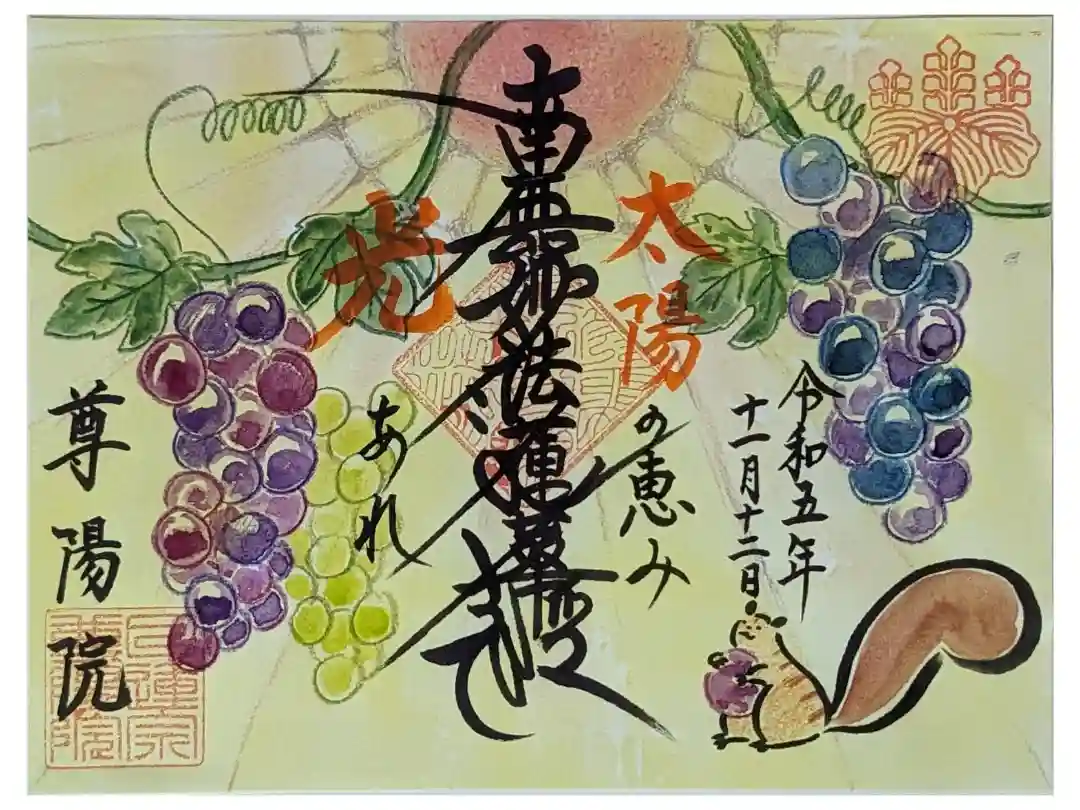 令和五年
十一月十二日
太陽の恵み
南無妙法蓮華経
光あれ
尊陽院
日蓮宗
尊陽院